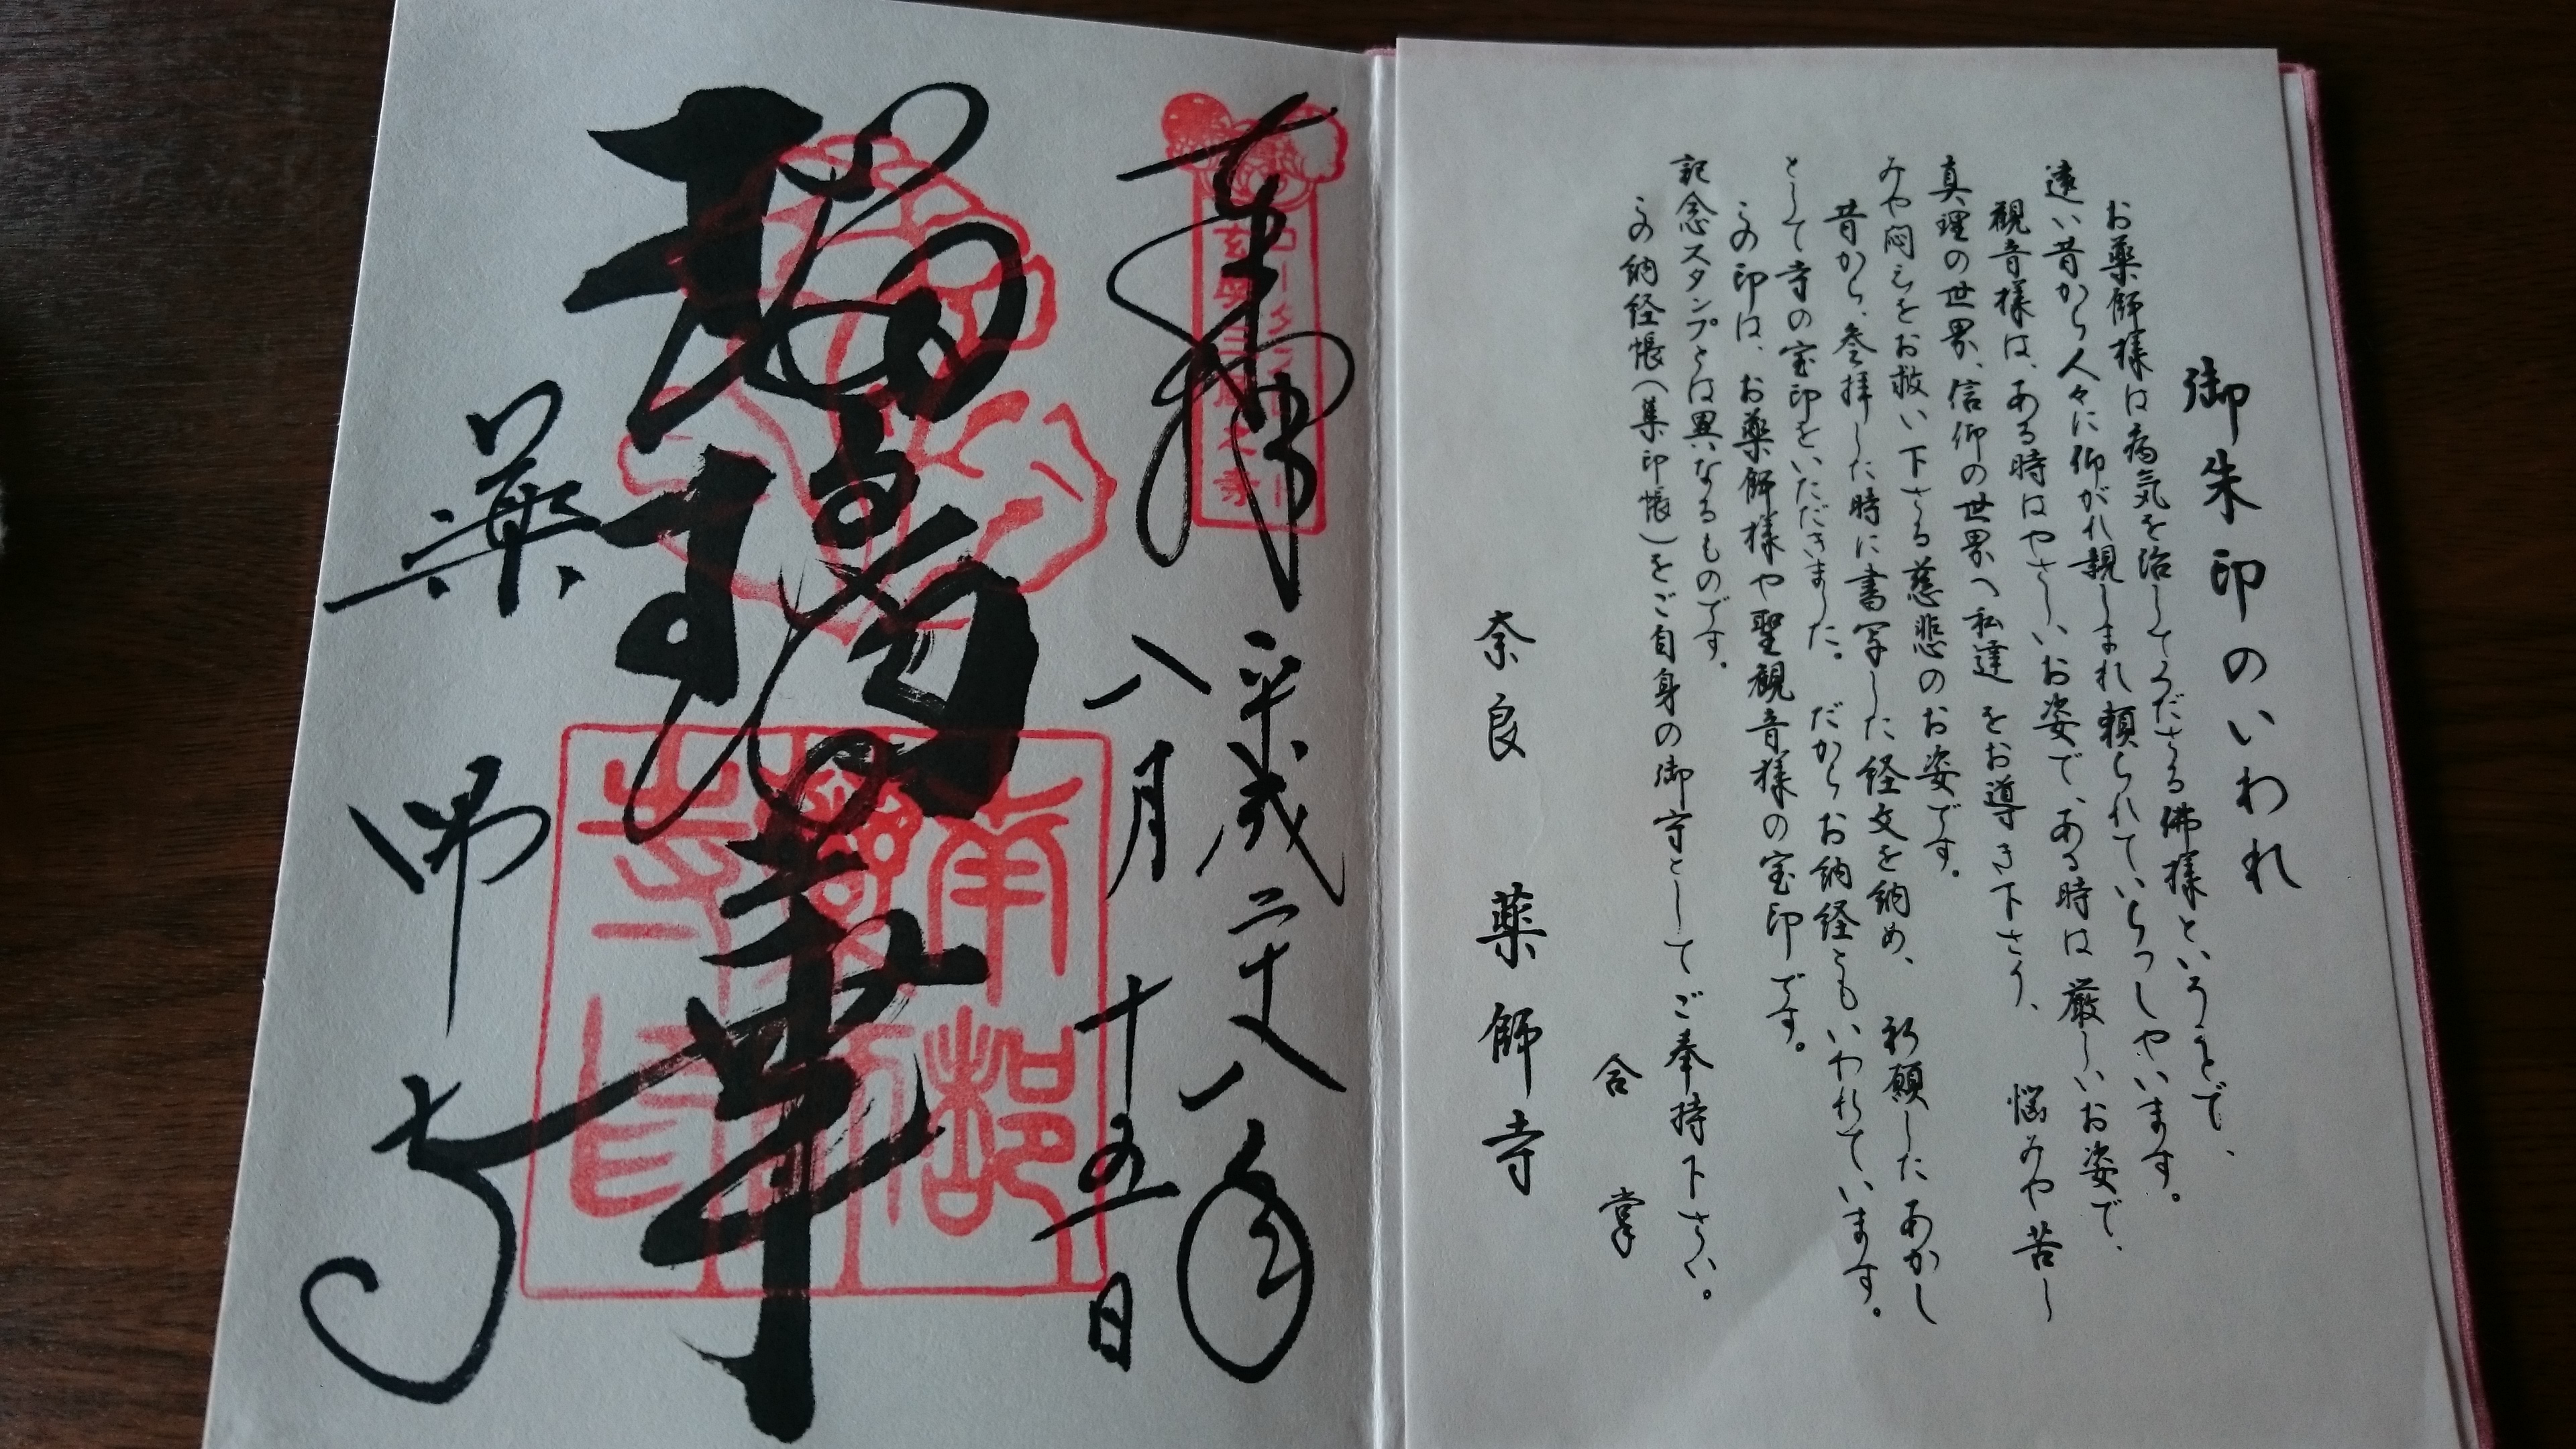 御朱印のいわれ
お薬師様は病気を治してくださる佛様ということで、
遠い昔から人々に仰がれ親しまれ頼られていらっしゃいます。
観音様は、ある時はやさしいお姿で、ある時は厳しいお姿で、
真理の世界、信仰の世界へ私達をお導き下さり、悩みや苦し
みや悶えをお救い下さる慈悲のお姿です。
昔から、参拝した時に書写した経文を納め、祈願したあかし
として寺の宝印をいただきました。だからお納経ともいわれています。
この印は、お薬師様や聖観音様の宝印です。
記念スタンプとは異なるものです。
この納経帳(集印帳)をご自身の御守としてご奉持下さい。
合掌
奈良 薬師寺
奉拝
平成二十八年
八月十五日
瑠璃の華
薬師寺